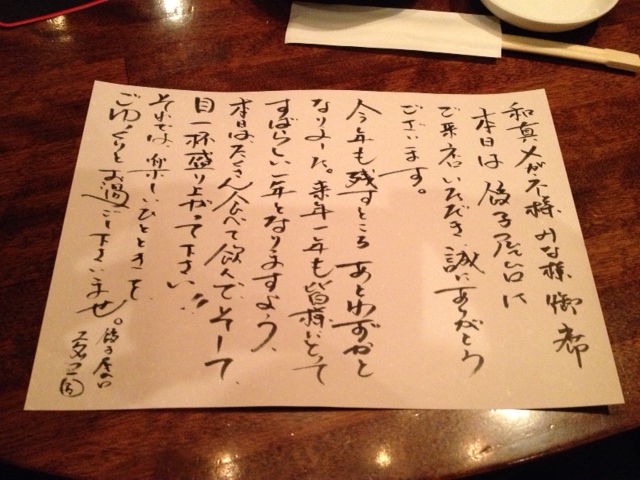 和真メガネ様 みな様 御席
本日は 餃子屋台に
ご来店いただき 誠にありがとう
ございます。
今年も残すところ あとわずかと
なりました。来年一年も皆様にとって
すばらしい一年となりますよう、
本日は、たくさん食べて飲んで、そして、
目一杯盛り上がって下さい!!
それでは、楽しいひとときを
ごゆっくりとお過ごし下さいませ。
餃子屋台